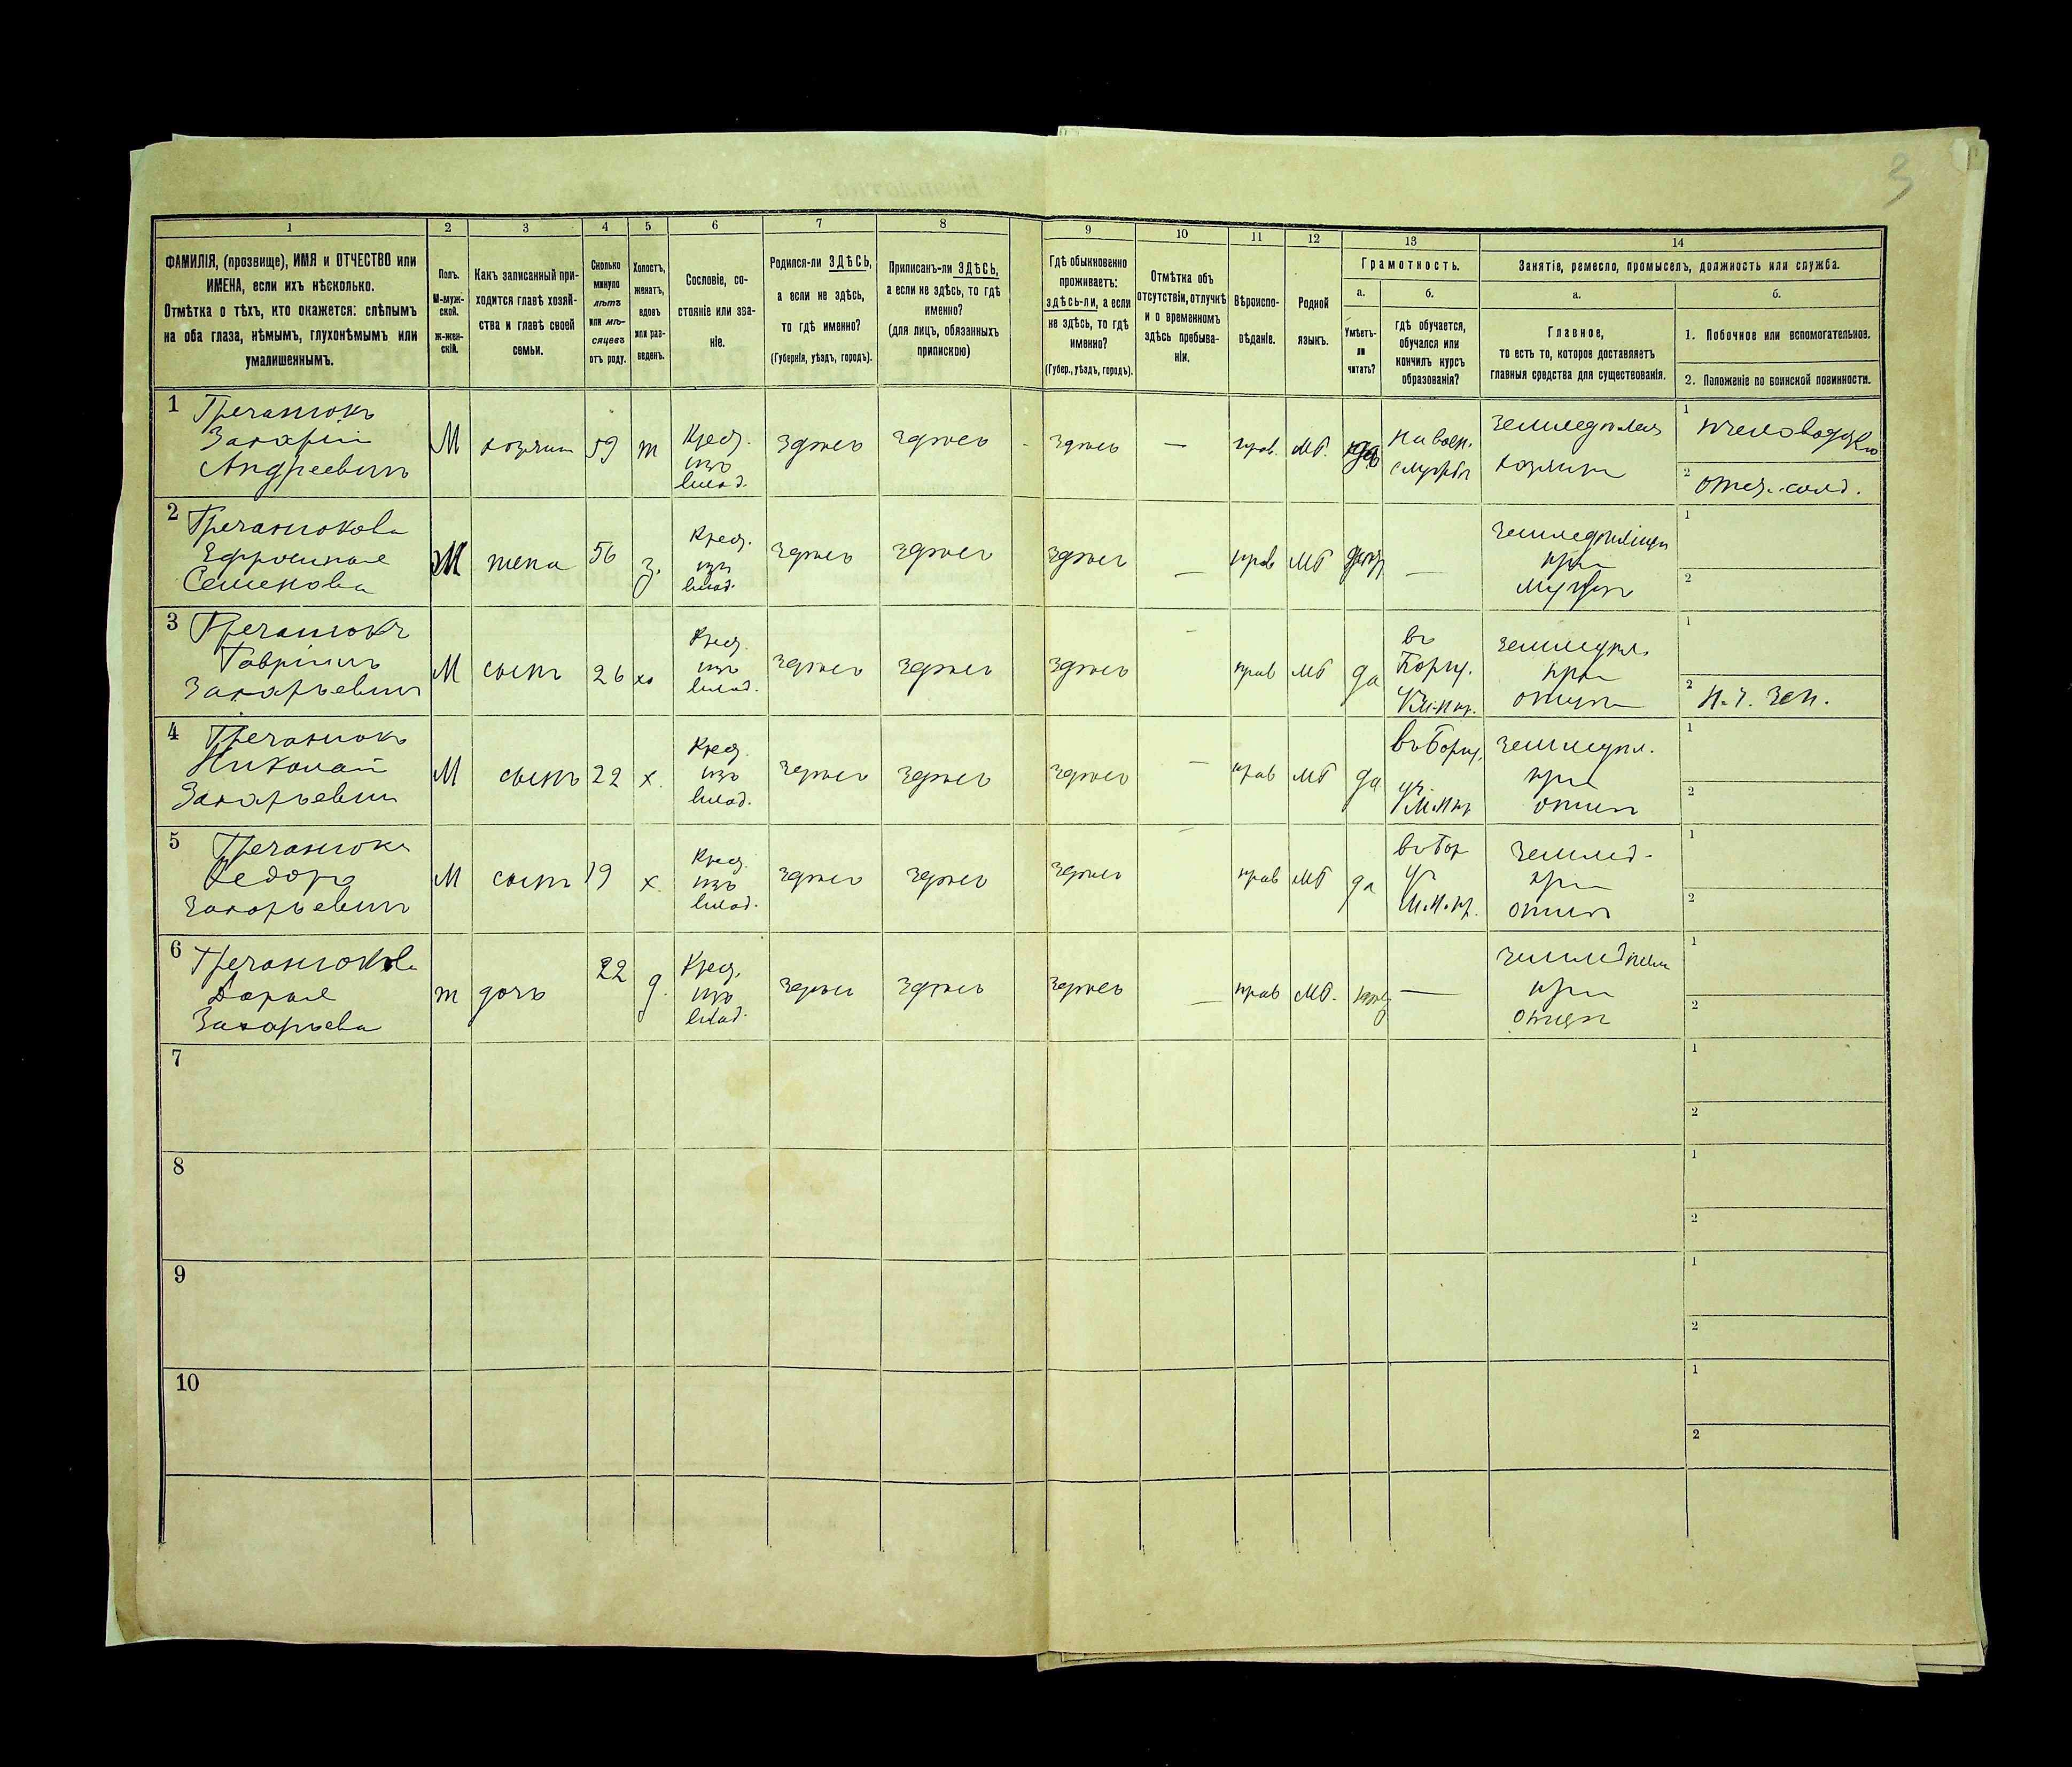 3
1
2
3
4
5
6
7
8
9
10
11
12
13
14
ФАМИЛІЯ, (прозвище), ИМЯ и ОТЧЕСТВО или
ИМЕНА, если ихъ нѣсколько.
Отмѣтка о тѣхъ, кто окажется: слѣпымъ
на оба глаза, нѣмымъ, глухонѣмымъ или
умалишеннымъ.
Полъ.
М-муж-
ской.
Ж-жен-
скій.
Какъ записанный при-
ходится главѣ хозяй-
ства и главѣ своей
семьи.
Сколько
минуло
лѣтъ
или мѣ-
сяцевъ
отъ роду.
Холостъ,
женатъ,
вдовъ
или раз-
веденъ.
Сословіе, со-
стояніе или зва-
ніе.
Родился-ли ЗДѢСЬ,
а если не здѣсь,
то гдѣ именно?
(Губернія, уѣздъ, городъ).
Приписанъ-ли ЗДѢСЬ,
а если не здѣсь, то гдѣ
именно?
(для лицъ, обязанныхъ
припискою)
Гдѣ обыкновенно
проживаетъ:
здѣсь-ли, а если
не здѣсь, то гдѣ
именно?
(Губер., уѣздъ, городъ).
Отмѣтка объ
отсутствіи, отлучкѣ
и о временномъ
здѣсь пребыва-
ніи.
Вѣроиспо-
вѣданіе.
Родной
языкъ.
Грамотность.
а.
Умѣетъ-
ли
читать?
б.
гдѣ обучается,
обучался или
кончилъ курсъ
образованія?
Занятіе, ремесло, промыселъ, должность или служба.
а.
Главное,
то есть то, которое доставляетъ
главныя средства для существованія.
б.
1. Побочное или вспомогательное.
2. Положеніе по воинской повинности.
1 Гречанюкъ
Захарій
Андреевичъ
М
хозяинъ
59
ж
Крест.
изъ
влад.
здѣсь
здѣсь
здѣсь
—
прав.
МР.
на воен.
службѣ
земледѣлецъ
хозяинъ
1 пчеловодство
2 отст. солд.
2 Гречанюкова
Ефросинья
Семенова
жена
56
з.
Крест.
изъ
влад.
здѣсь
здѣсь
здѣсь
—
прав
МР
—
при
мужѣ
1
2
3 Гречанюкъ
Гавріилъ
Захарьевичъ
М
сынъ
26
хо
Крест.
изъ
влад.
здѣсь
здѣсь
здѣсь
—
прав
МР
да
въ
уч.
М.Н.пр.
при
отцѣ
1
2
4 Гречанюкъ
Николай
Захарьевичъ
М
сынъ
22
х.
Крест.
изъ
влад.
здѣсь
здѣсь
здѣсь
—
прав
МР
да
уч.
М.Н.пр
при
отцѣ
1
2
5 Гречанюкъ
Ѳедоръ
Захарьевичъ
М
сынъ
19
х.
Крест.
изъ
влад.
здѣсь
здѣсь
здѣсь
—
прав
МР
да
въ Бор
уч
М.Н.пр.
землед.
при
отцѣ
1
2
6 Гречанюкова
Дарья
Захарьева
ж
дочь
22
д.
Крест.
изъ
влад.
здѣсь
здѣсь
здѣсь
—
прав
МР.
—
при
отцѣ
1
2
7
1
2
8
1
2
9
1
2
10
1
2